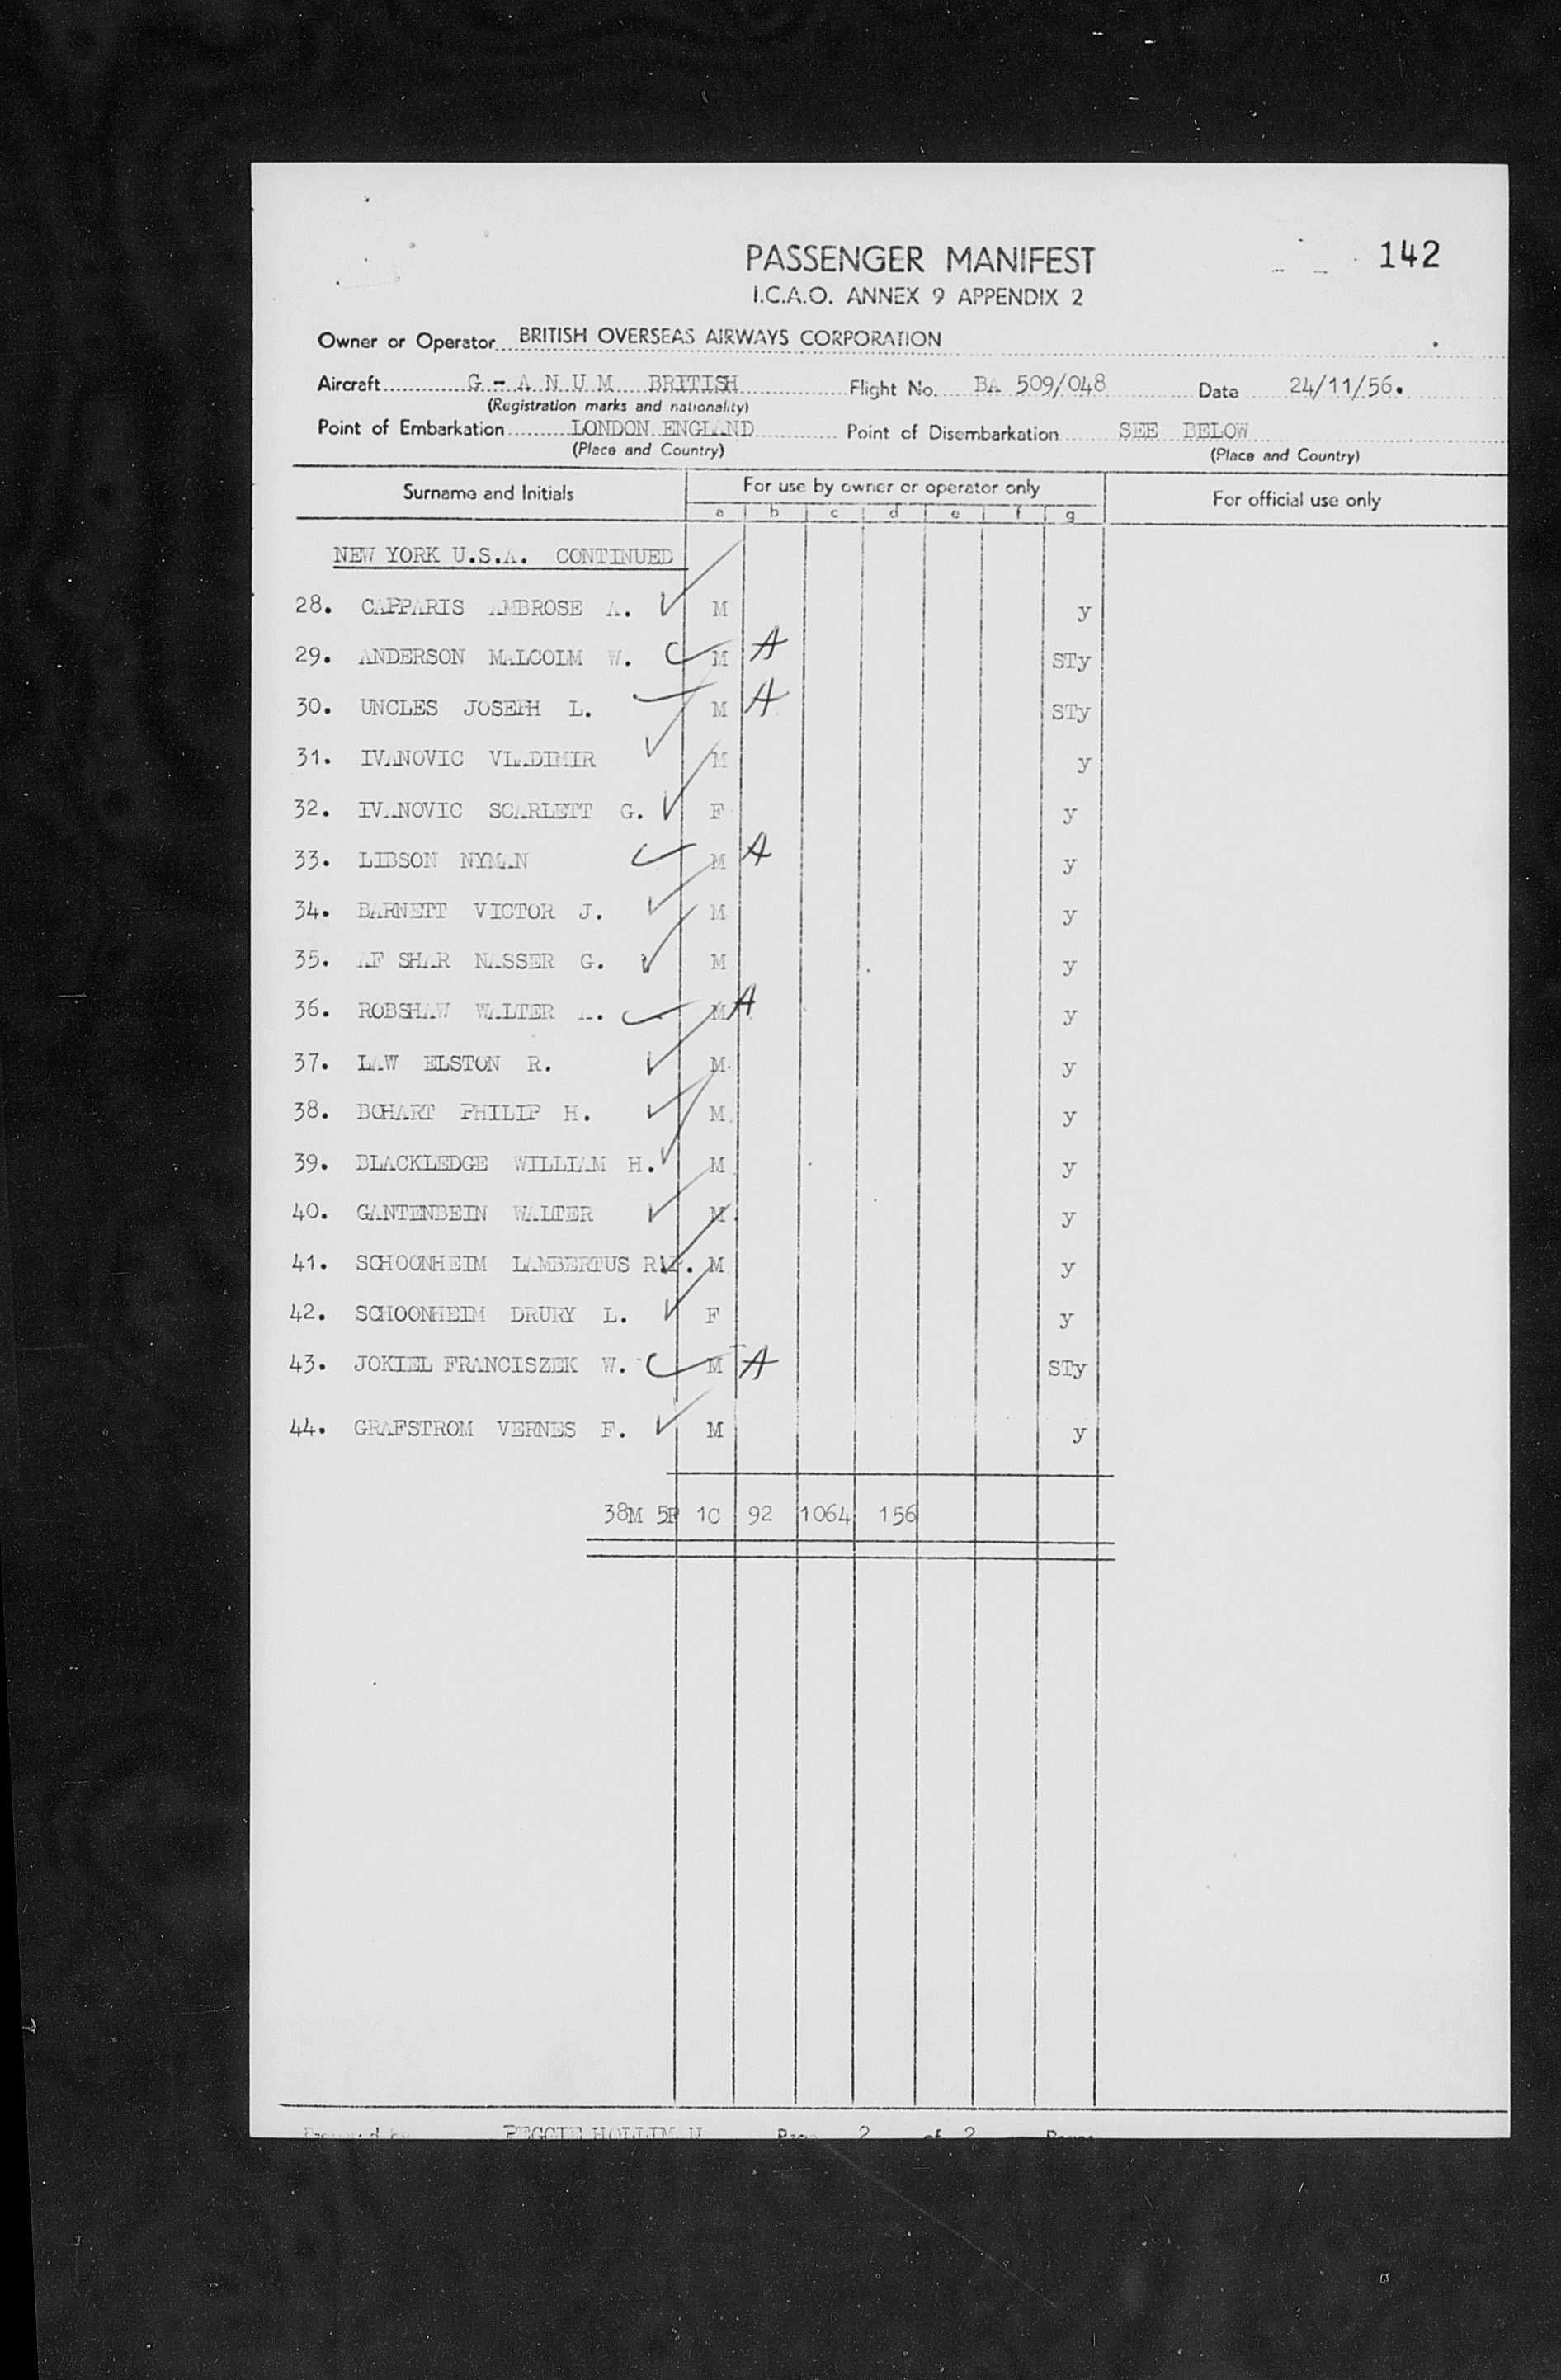 PASSENGER MANIFEST 142
I.C.A.O. ANNEX 9 APPENDIX 2
Owner or Operator BRITISH OVERSEAS AIRWAYS CORPORATION
Aircraft G - A N U M BRITISH Flight No. BA 509/048 Date 24/11/56.
(Registration marks and nationality)
Point of Embarkation LONDON ENGLAND Point of Disembarkation SEE BELOW
(Place and Country) (Place and Country)
Surname and Initials For use by owner or operator only For official use only
a b c d e f g
NEW YORK U.S.A. CONTINUED
28. CAPPARIS AMBROSE A. M y
29. ANDERSON MALCOLM W. M A STy
30. UNCLES JOSEPH L. M A STy
31. IVANOVIC VLADIMIR M y
32. IVANOVIC SCARLETT G. F y
33. LIBSON NYMAN M A y
34. BARNETT VICTOR J. M y
35. AF SHAR NASSER G. M y
36. ROBSHAW WALTER A. M A y
37. LAW ELSTON R. M y
38. BOHART PHILIP H. M y
39. BLACKLEDGE WILLIAM H. M y
40. GANTENBEIN WALTER M y
41. SCHOONHEIM LAMBERTUS M y
42. SCHOONHEIM DRURY L. F y
43. JOKIEL FRANCISZEK W. M A STy
44. GRAFSTROM VERNES F. M y
38M 5F 1C 92 1064 156
PEGGIE HOLLIMAN Page 2 of 2 Pages